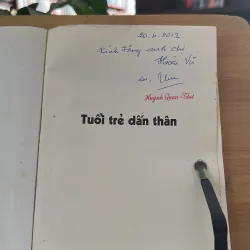 20.6.2012
Kính tặng anh chị
Hoài Vũ
Huỳnh Quan-Thư
Tuổi trẻ dấn thân